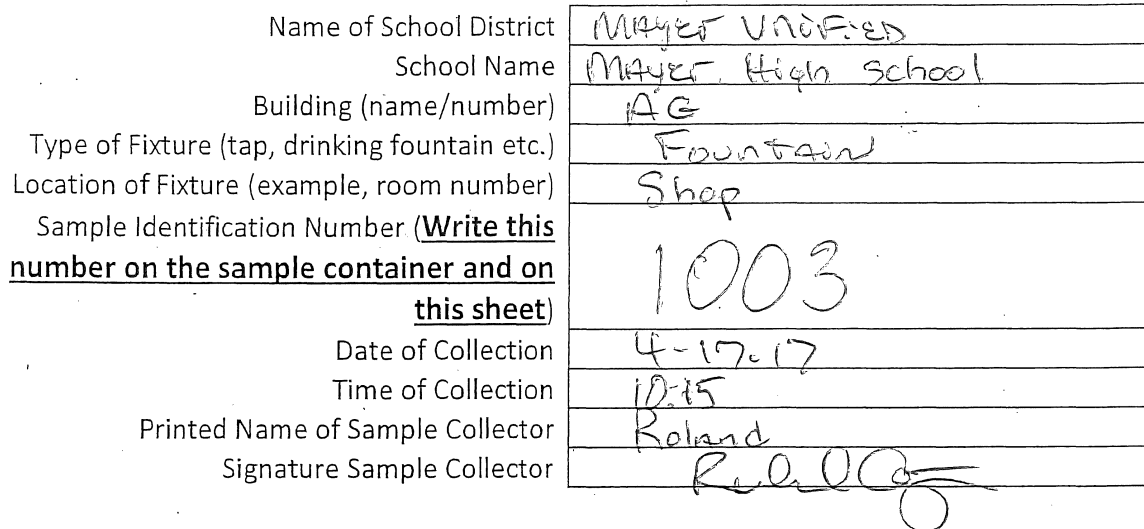 Name of School District MAYER UNIFIED
School Name MAYER High School
Building (name/number) AG
Type of Fixture (tap, drinking fountain etc.) FOUNTAIN
Location of Fixture (example, room number) Shop
Sample Identification Number (Write this
number on the sample container and on
this sheet) 1003
Date of Collection 4-17-17
Time of Collection 10:15
Printed Name of Sample Collector Roland
Signature Sample Collector